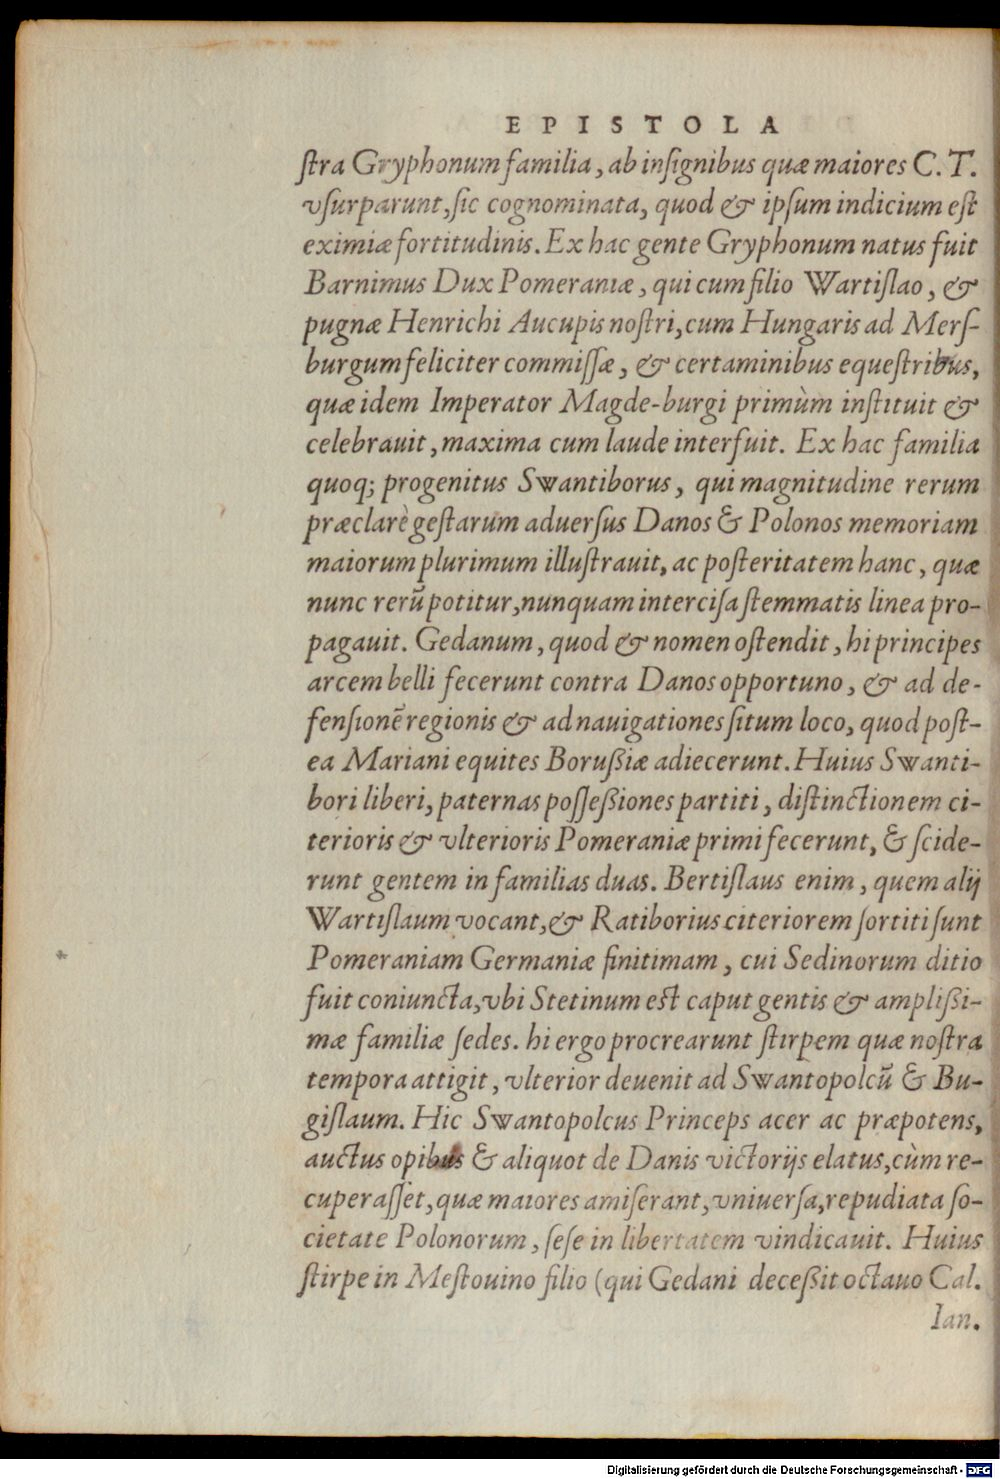 EPISTOLA
ſtra Gryphonum familia, ab inſignibus quæ maiores C. T.
vſurparunt, ſic cognominata, quod & ipſum indicium eſt
eximiæ fortitudinis. Ex hac gente Gryphonum natus fuit
Barnimus Dux Pomeraniæ, qui cum filio Wartiſlao, &
pugnæ Henrichi Aucupis noſtri, cum Hungaris ad Merſ-
burgum feliciter commiſſæ, & certaminibus equeſtribus,
quæ idem Imperator Magde-burgi primùm inſtituit &
celebrauit, maxima cum laude interfuit. Ex hac familia
quoq; progenitus Swantiborus, qui magnitudine rerum
præclarè geſtarum aduerſus Danos & Polonos memoriam
maiorum plurimum illuſtrauit, ac poſteritatem hanc, quæ
nunc rerū potitur, nunquam interciſa ſtemmatis linea pro-
pagauit. Gedanum, quod & nomen oſtendit, hi principes
arcem belli fecerunt contra Danos opportuno, & ad de-
fenſionē regionis & ad nauigationes ſitum loco, quod poſt-
ea Mariani equites Boruſsiæ adiecerunt. Huius Swanti-
bori liberi, paternas poſſeſsiones partiti, diſtinctionem ci-
terioris & vlterioris Pomeraniæ primi fecerunt, & ſcide-
runt gentem in familias duas. Bertiſlaus enim, quem alij
Wartiſlaum vocant, & Ratiborius citeriorem ſortiti ſunt
Pomeraniam Germaniæ finitimam, cui Sedinorum ditio
fuit coniuncta, vbi Stetinum eſt caput gentis & ampliſsi-
mæ familiæ ſedes. hi ergo procrearunt ſtirpem quæ noſtra
tempora attigit, vlterior deuenit ad Swantopolcū & Bu-
giſlaum. Hic Swantopolcus Princeps acer ac præpotens,
auctus opibus & aliquot de Danis victorijs elatus, cùm re-
cuperaſſet, quæ maiores amiſerant, vniuerſa, repudiata ſo-
cietate Polonorum, ſeſe in libertatem vindicauit. Huius
ſtirpe in Meſtouino filio (qui Gedani deceſsit octauo Cal.
Ian.
Digitalisierung gefördert durch die Deutsche Forschungsgemeinschaft - DFG